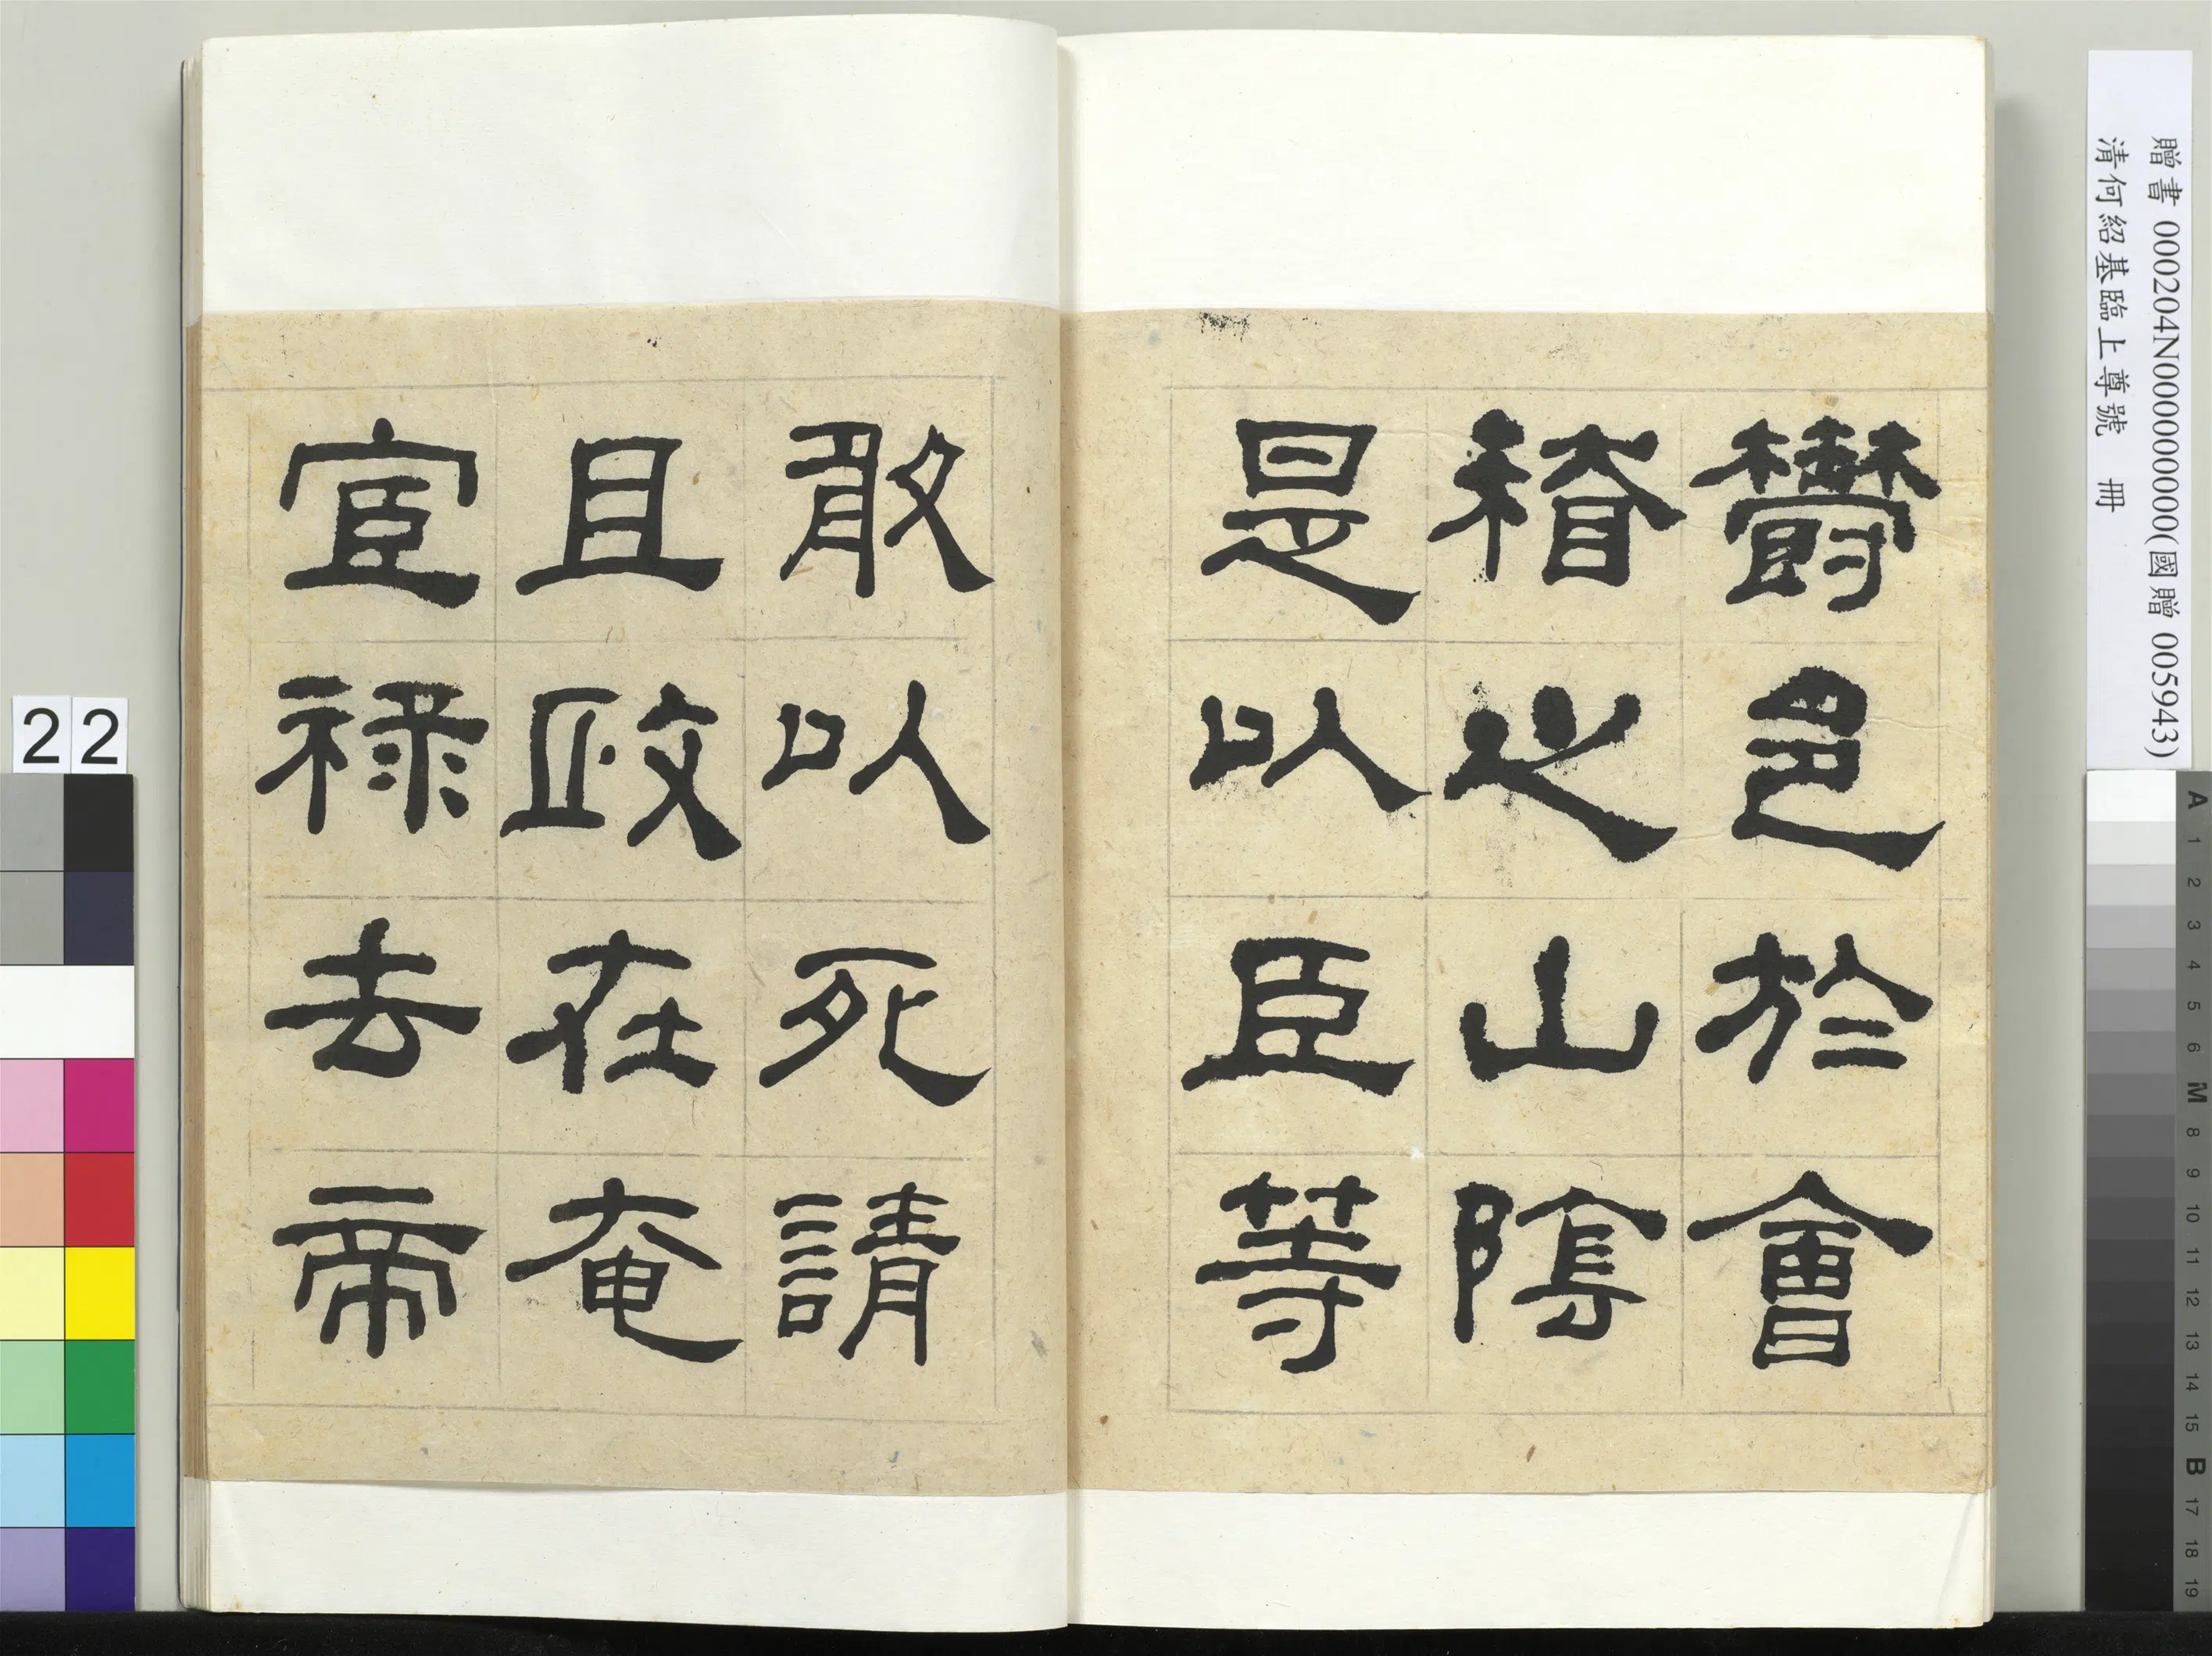 欎邑於會
稽之山陰
是以臣等
敢以死請
且政在奄
宦祿去帝
贈書 000204N000000000(國贈 005943)
清何紹基臨上尊號 冊
22
A 1 2 3 4 5 6 M 8 9 10 11 12 13 14 15 B 17 18 19